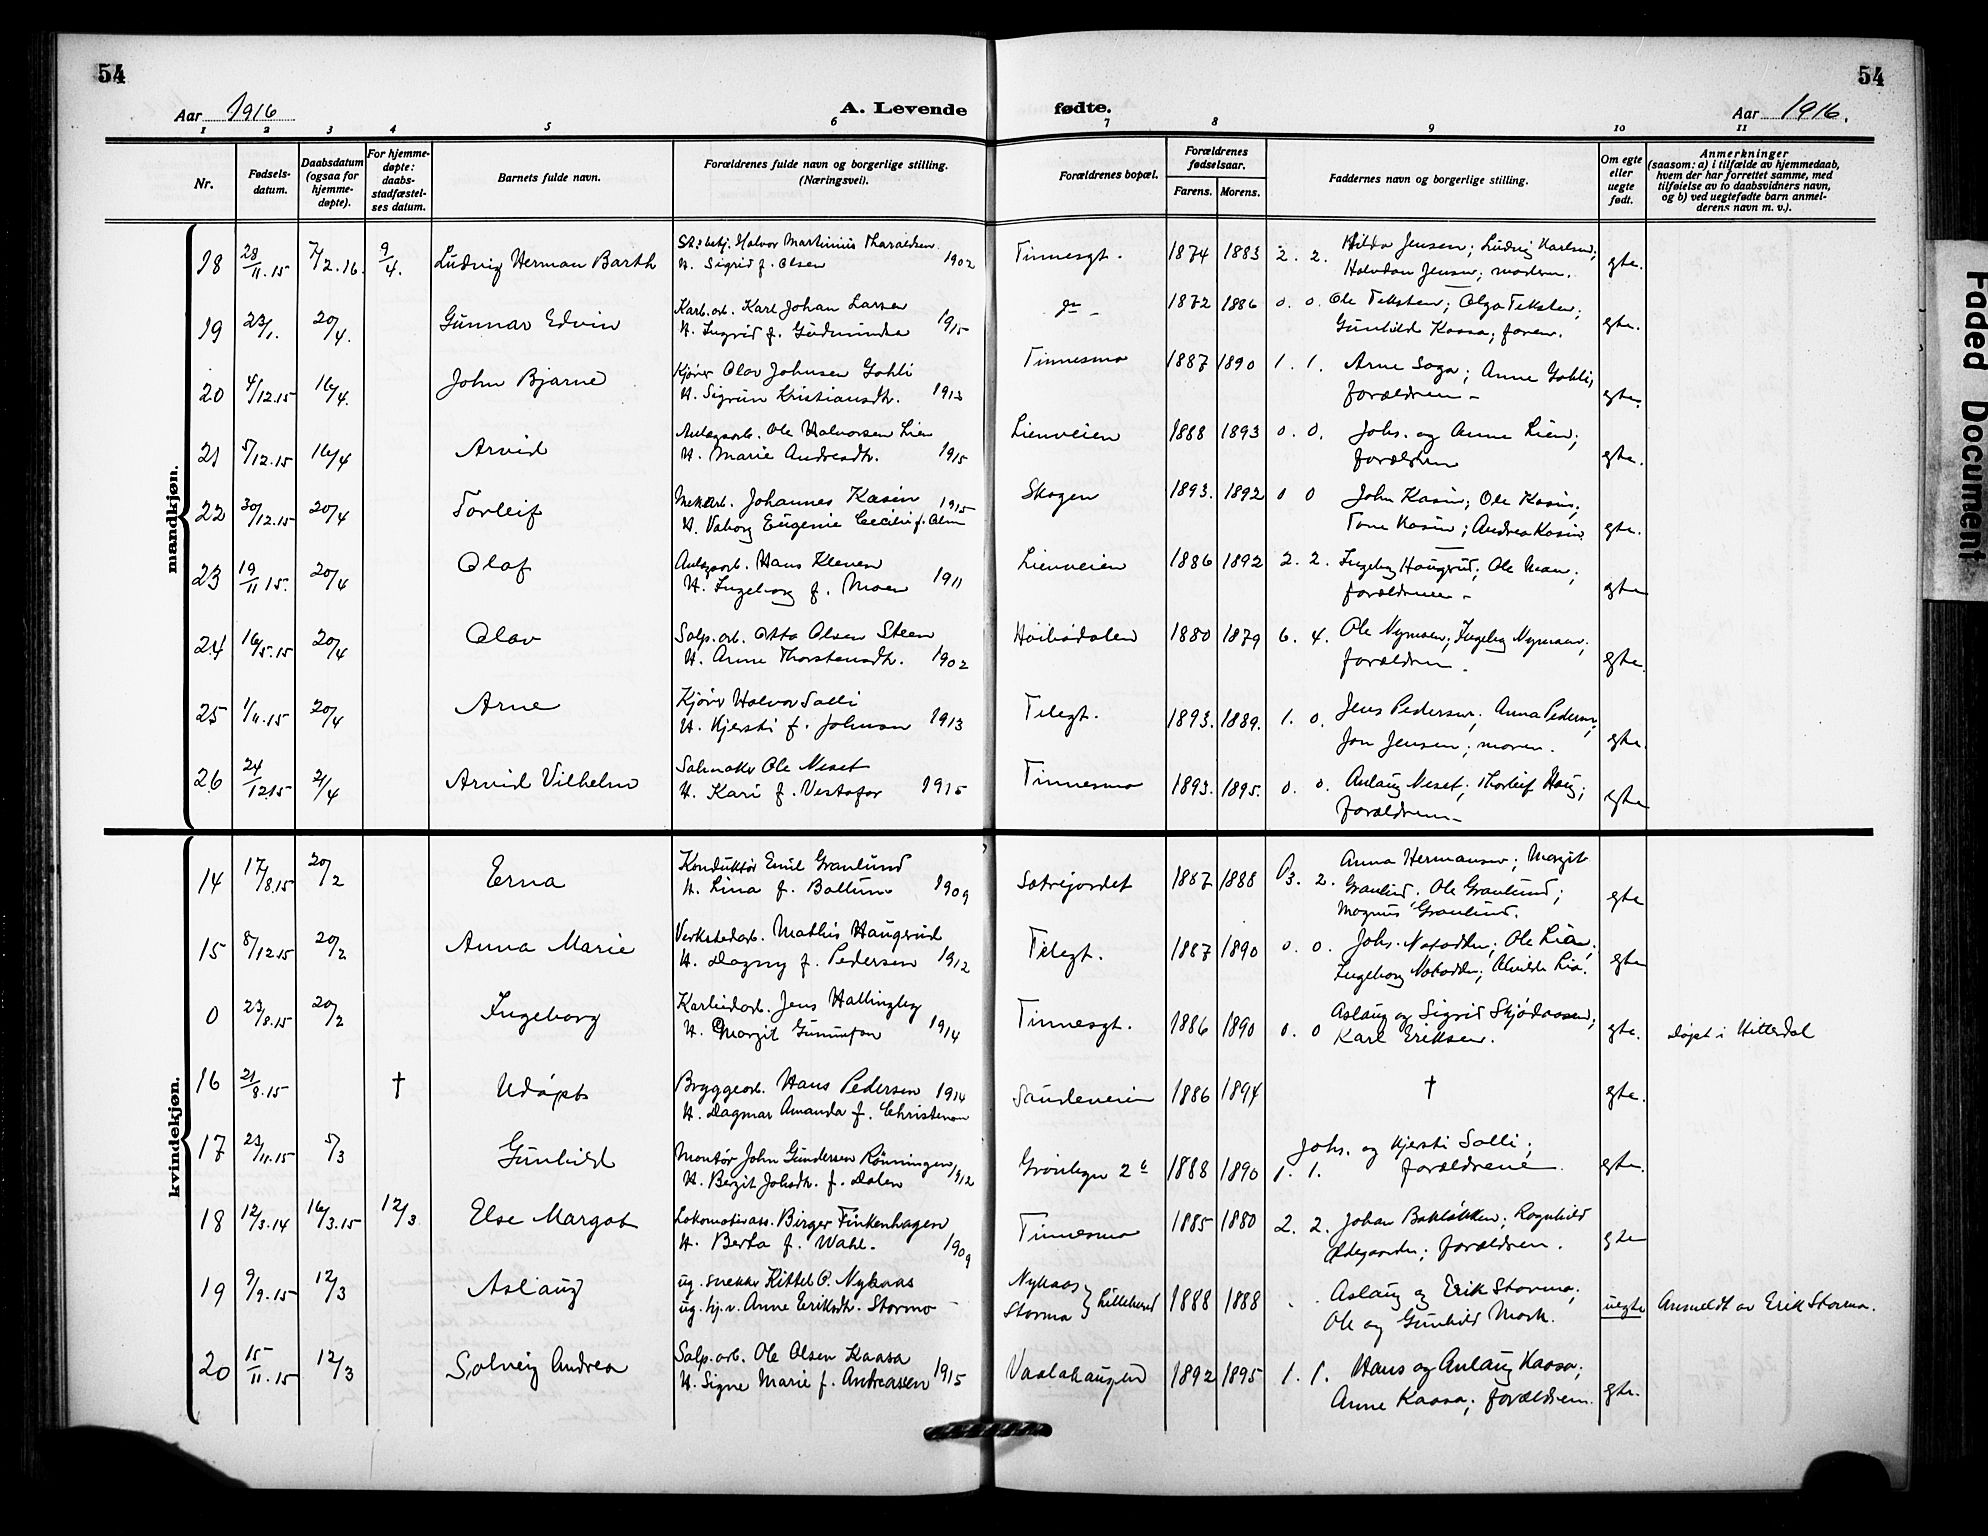 54
54
Aar 1916
A. Levende
fødte.
Aar 1916.
1 2 3 4 5 6 7 8 9 10 11
Nr.
Fødsels-
datum.
Daabsdatum
(ogsaa for
hjemme-
døpte).
For hjemme-
døpte:
daabs-
stadfæstel-
ses datum.
Barnets fulde navn.
Forældrenes fulde navn og borgerlige stilling.
(Næringsvei).
Forældrenes bopæl.
Forældrenes
fødselsaar.
Farens. Morens.
Faddernes navn og borgerlige stilling.
Om egte
eller
uegte
født.
Anmerkninger
(saasom: a) i tilfælde av hjemmedaab,
hvem der har forrettet samme, med
tilføielse av to daabsvidners navn,
og b) ved uegtefødte barn anmel-
derens navn m. v.).
mandkjøn.
18 28/11.15 7/2.16. 9/4. Ludvig Herman Barth Halvor Martinius Tharaldsen
H. Sigrid f. Olsen 1902
Tinnesgt. 1874 1883 2. 2. Hilda Jensen; Ludvig Karlsen;
Halvdan Jensen; moderen. egte.
19 23/1. 20/4. Gunnar Edvin Karb.arb. Karl Johan Larsen
H. Ingrid f. Gudmundsen 1915
do - 1872 1886 0. 0. Ole Teksten; Olga Teksten;
Gunhild Kaasa; faren. egte.
20 4/12.15 16/4. John Bjarne Kjører Olav Johnsen Gohli
H. Sigrun Kristiansdtr. 1913
Tinnesmo 1887 1890 1. 1. Arne Soga; Anne Gohli;
forældrene - egte.
21 5/12.15 16/4 Arvid Anlægsarb. Ole Halvorsen Lien
H. Marie Andreasdtr. 1915
Lienveien 1888 1893 0. 0. Johs. og Anne Lien;
forældrene egte.
22 30/12.15 20/4 Torleif Johannes Kasin 1915
H. Valborg Eugenie Cecilie f. Olsen
Skogen 1893. 1892 0 0 John Kasin; Ole Kasin;
Tone Kasin; Andrea Kasin egte.
23 19/11 15. 20/4 Olaf Anlægsarb. Hans Kleven
H. Ingeborg f. Moen 1911
Lienveien 1886 1892 2. 2. Ingeborg Haugerud; Ole Moen;
forældrene - egte
24 16/5.15 20/4 Olav Salp.arb. Otto Olsen Steen
H. Anne Thorstensdtr. 1902
Høibødalen 1880 1879 6. 4. Ole Nymoen; Ingeborg Nymoen;
forældrene. egte.
25 1/11.15 20/4 Arne Kjører Halvor Solli
H. Kjersti f. Johnsen 1913
Telegt. 1893. 1889. 1. 0. Jens Pedersen; Anna Pedersen;
Jon Jensen; moren. egte.
26 24/12.15 21/4 Arvid Vilhelm Salmaker Ole Neset
H. Kari f. Vestafor 1915
Tinnesmo 1893. 1895. 0. 0. Aslaug Neset; Thorleif Haug;
forældrene - egte
kvindekjøn.
14 17/8.15 20/2 Erna Konduktør Emil Granlund
H. Lina f. Ballund 1909
Sætrejordet 1887 1888 3. 2. Anna Hermansen; Margit
Granlund. Ole Granlund;
Magnus Granlund. egte
15 8/12.15 20/2 Anna Marie Verkstedarb. Mathis Haugerud
H. Dagny f. Pedersen 1912
Telegt. 1887 1890 0. 0. Johs. Notodden; Ole Lia;
Ingeborg Notodden; Alvilde Lia. egte
0 23/8.15 20/2 Ingeborg Karbidarb. Jens Hallingby
H. Margit Gunnufsen 1914
Tinnesgt. 1886 1890 0. 0 Aslaug og Sigrid Skjødaasen;
Karl Eriksen. egte. døpt i Hitterdal
16 21/8.15 † Udøpt Bryggearb. Hans Pedersen 1914
H. Dagmar Amanda f. Christensen
Saudeveien 1886 1894 † egte.
17 23/11.15 5/3 Gunhild Montør John Gundersen Rønningen 1912
H. Bergit Johsdtr. f. Dalen
Grønbyn 2b 1888 1890 1. 1. Johs. og Kjersti Solli;
forældrene. egte.
18 12/3.14 16/3.15 12/3 Else Margot Lokomotivass. Birger Finkenhagen
H. Berta f. Wahl. 1909
Tinnesmo 1885 1880 2. 2. Johan Bakløkken; Ragnhild
Ødegaarden; forældrene. egte
19 9/9.15 12/3 Aslaug ug. snekker Kittel O. Nykaas
ug. tj. v. Anne Eriksdtr. Stormo
Nykaas
Stormo } Lilleherred 1888 1888 Aslaug og Erik Stormo;
Ole og Gunhild Mork. uegte Anmeldt av Erik Stormo.
20 15/11.15 12/3 Solveig Andrea Salp.arb. Ole Olsen Kaasa
H. Signe Marie f. Andreassen 1915
Vaalahaugen 1892 1895 1. 1. Hans og Aslaug Kaasa;
Anne Kaasa; forældrene. egte.
Faded Document